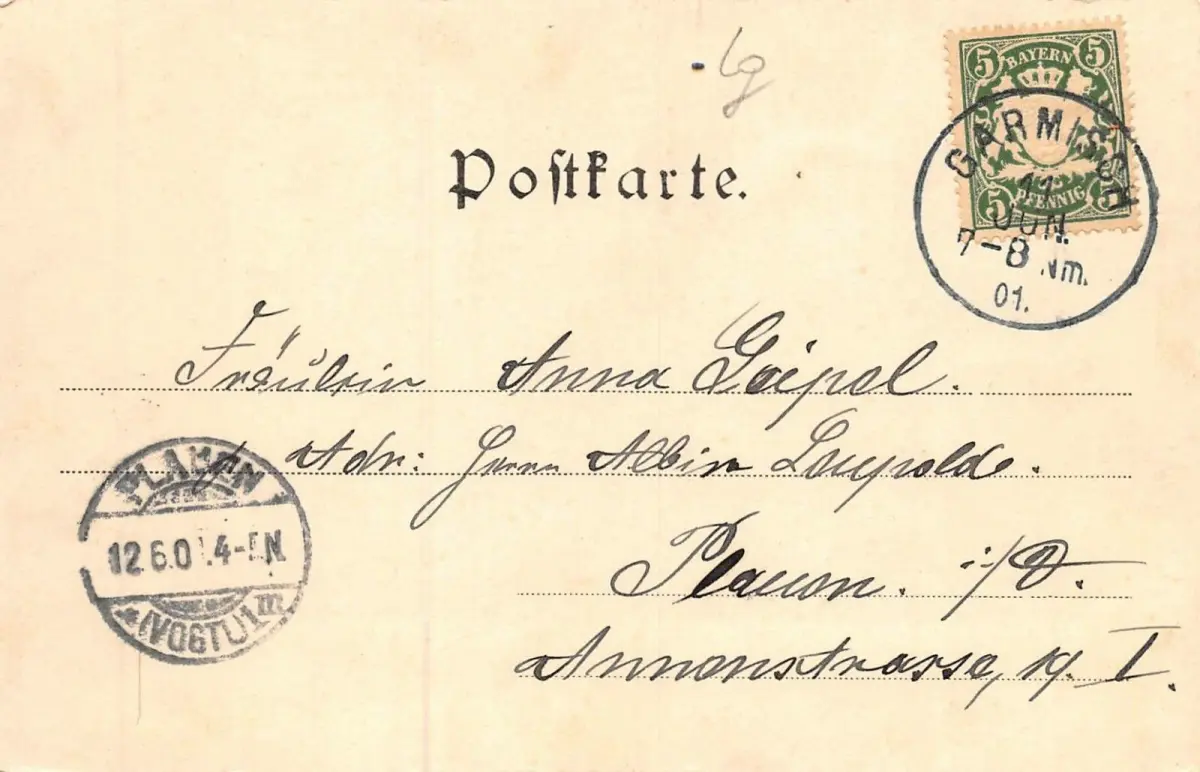 lg
5 BAYERN 5
5 PFENNIG 5
GARMISCH
11
JUN.
7-8 Nm.
01.
Postkarte.
Fräulein Anna Geipel.
Adr: Herrn Albin Leupolde.
Plauen. i/V.
Annenstrasse, I.
PLAUEN
12.6.01.4-5N.
*(VOGTL)1